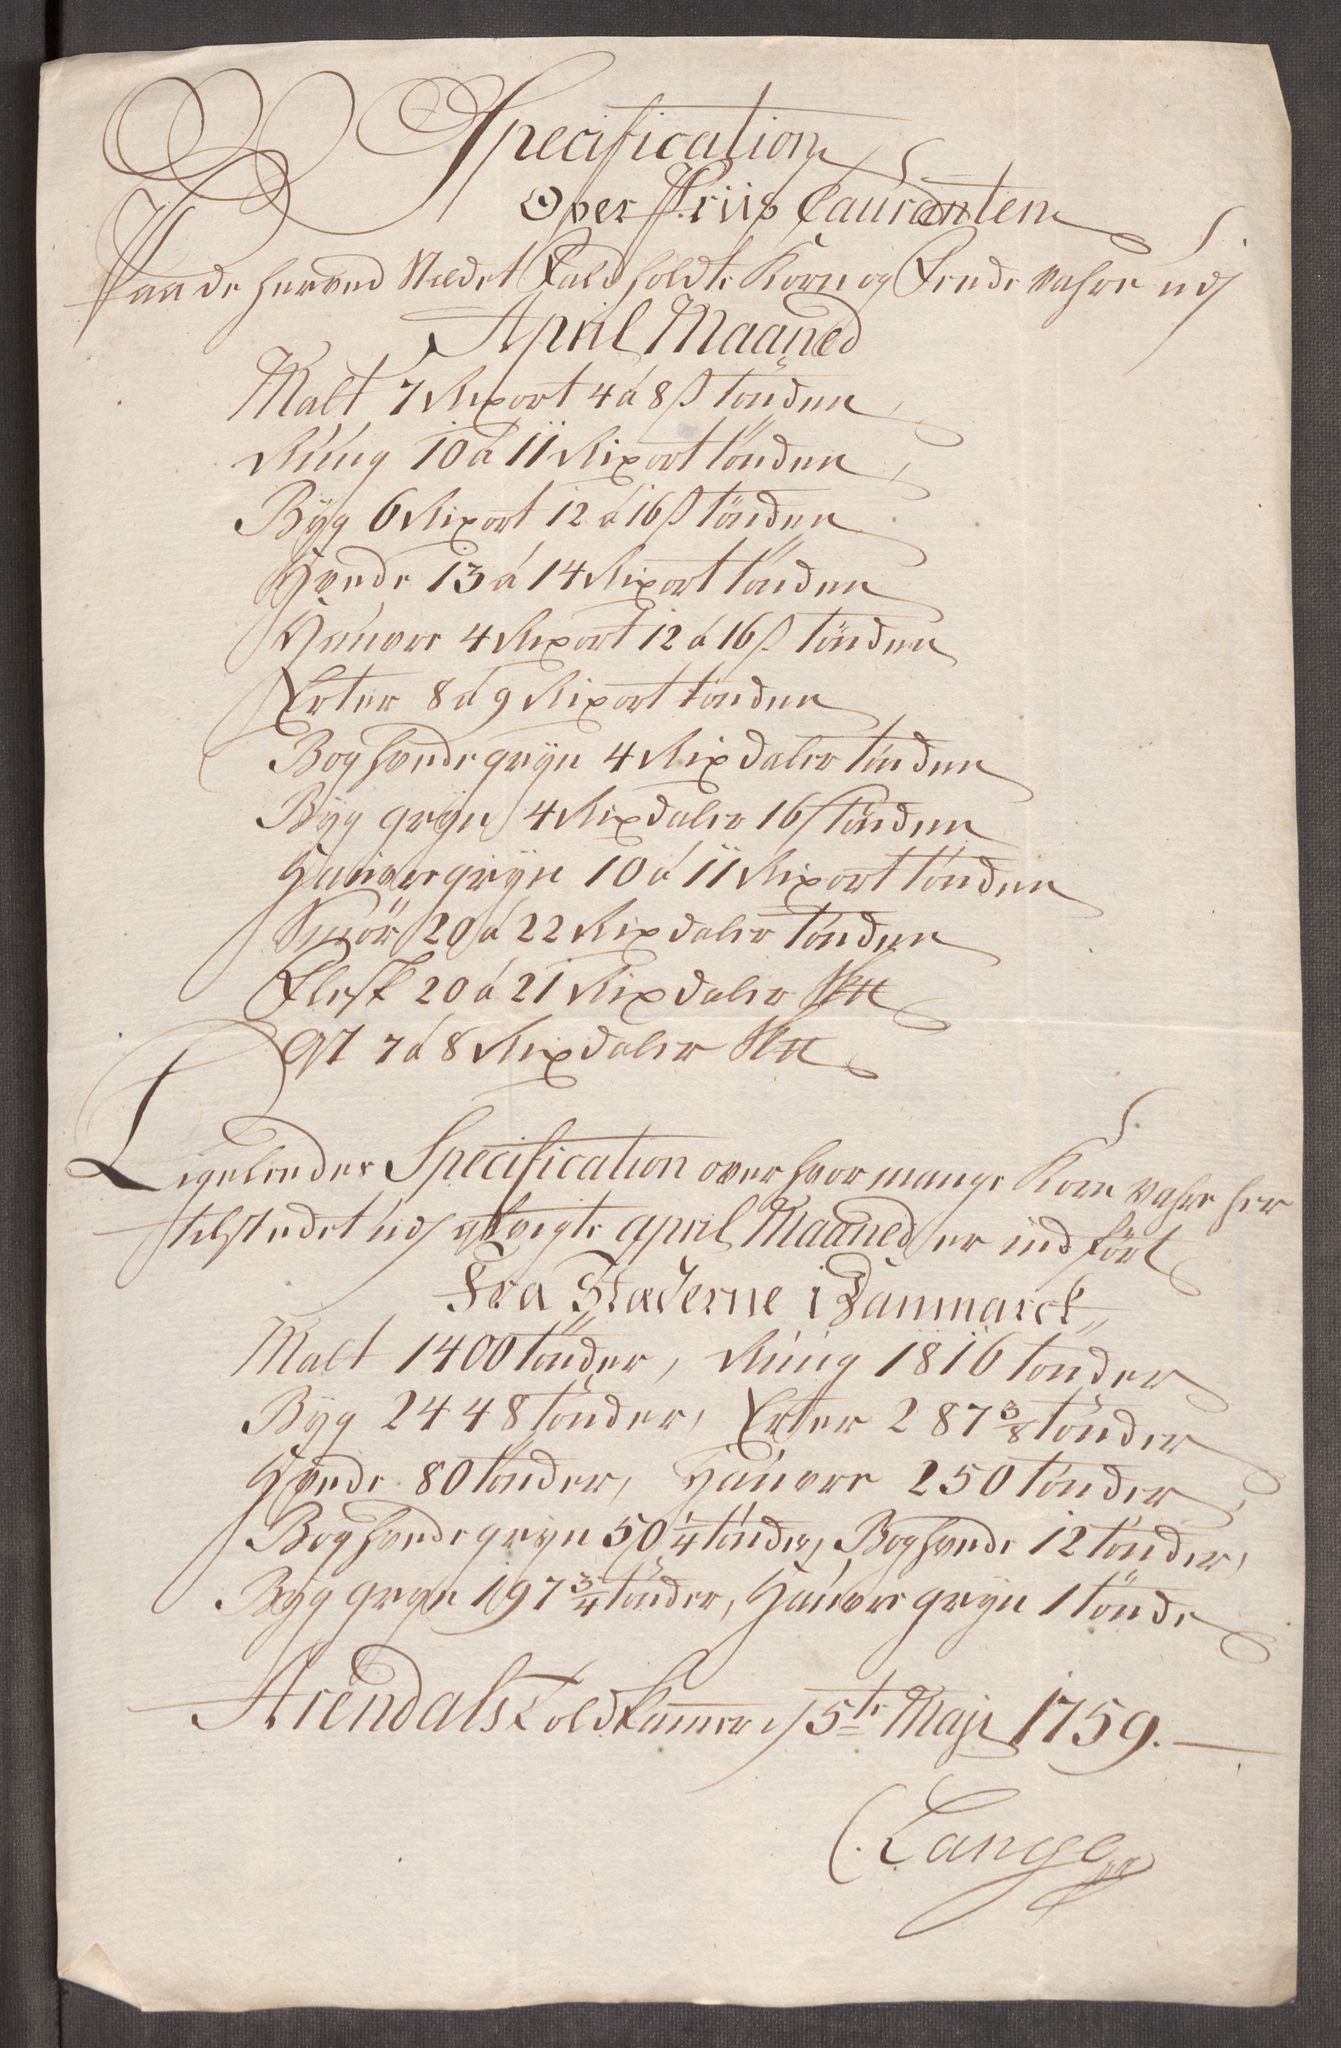 Specification
Over Priis Couranten
Paa de herved Stædet Faldholdte Korn og Fende vahre udj
April Maaned
Malt 7 Rixort 4 á 8 ß tönden
Rúúg 10 á 11 Rixort tönden
Byg 6 Rixort 12 á 16 ß tönden
Hvede 13 á 14 Rixort tönden
Háúvre 4 Rixort 12 á 16 ß tönden
Erter 8 á 9 Rixort tönden
Boghvedegryn 4 Rixdaler tönden
Byggryn 4 Rixdaler 16 ß tönden
Hauvregryn 10 á 11 Rixort tönden
Smör 20 á 22 Rixdaler tönden
Flesk 20 á 21 Rixdaler Sktt
Ost 7 á 8 Rixdaler Sktt
Ligeledes Specification over hvor mange Korn vahre her
tilstedet udj afvigte april Maaned er indfört
Fra Stæderne i Danmarck
Malt 1400 tönder, Rúúg 1816 tönder
Byg 2448 tönder, Erter 287 3/8 tönder
Hvede 80 tönder, Háúvre 250 tönder,
Boghvedegryn 50 1/4 tönder, Boghvede 12 tönder,
Byggryn 197 3/4 tönder, Háúvregryn 1 tönde
Arendals Toldkammer d 5te Maji 1759.
C. Lange